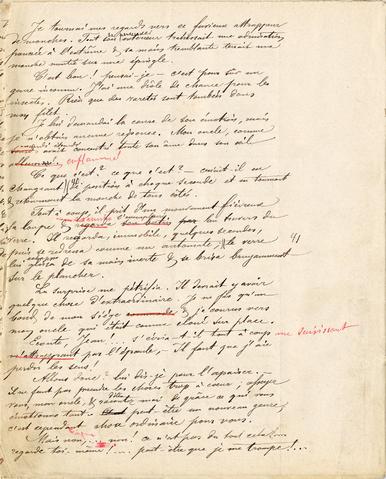 Je tournai mes regards vers ce furieux attrapeur
de mouches. Tout son extérieur trahissait une admiration
poussée à l'extrême & sa main tremblante tenait une
mouche mutée sur une épingle.
C'est bon ! pensai-je — c'est pour sûr un
genre inconnu. J'ai une drôle de chance pour les
insectes. Rien que des raretés sont tombées dans
mon filet.
Je lui demandai la cause de son émotion, mais
je n'obtins aucune réponse. Mon oncle, comme
concentré toute son âme dans son œil
enflammé
Ce que c'est ? ce que c'est ? — criait-il en
changeant de position à chaque seconde et en tournant
& retournant la mouche de tous côtés.
Tout à coup il prit d'un mouvement fiévreux
sa loupe & regarda au travers du
verre. Il regarda, immobile, quelques secondes,
puis se redressa comme un automate, le verre
de sa main inerte & se brisa bruyamment
sur le plancher.
41
La surprise me pétrifia. Il devait y avoir
quelque chose d'extraordinaire. Je ne fis qu'un
bond, de mon siège & je courus vers
mon oncle qui était comme cloué sur place.
Ecoute, Jean !... s'écria-t-il tout à coup me saisissant
par l'épaule, Il faut que j'aie
perdu les sens !
Allons donc ! lui dis-je pour l'apaiser. —
Il ne faut pas prendre les choses trop à cœur,
mon oncle, & racontez moi de grâce ce qui vous
émotionne tant. peut-être un nouveau genre,
c'est cependant chose ordinaire pour vous.
Mais non, non ! ce n'est pas du tout cela
regarde toi-même !... peut-être que je me trompe !...